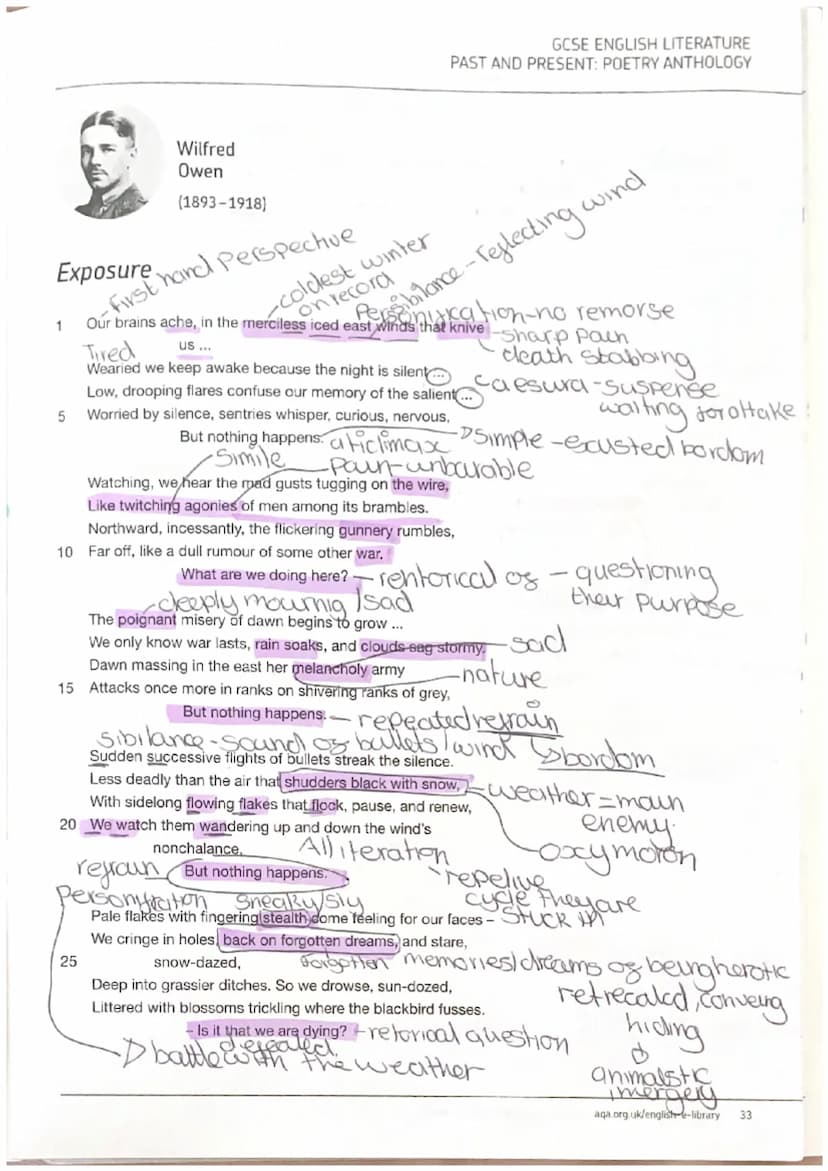 GCSE ENGLISH LITERATURE
PAST AND PRESENT: POETRY ANTHOLOGY
Wilfred
Owen
(1893–1918)
Exposure
first hand perspective
coldest winter
on record
sibilance - reflecting wind
Personification - no remorse
1 Our brains ache, in the merciless iced east winds that knive
us ...
- sharp pain
death stabbing
Tired
Wearied we keep awake because the night is silent ...
Low, drooping flares confuse our memory of the salient ...
caesura - suspense
waiting for attake
5 Worried by silence, sentries whisper, curious, nervous,
But nothing happens.
aticlimax
simple - exusted bordom
Simile
pain - unbarable
Watching, we hear the mad gusts tugging on the wire,
Like twitching agonies of men among its brambles.
Northward, incessantly, the flickering gunnery rumbles,
10 Far off, like a dull rumour of some other war.
What are we doing here?
- rehtorical qs - questioning
their purpose
deeply mournig /sad
The poignant misery of dawn begins to grow ...
We only know war lasts, rain soaks, and clouds sag stormy.
- sad
Dawn massing in the east her melancholy army
- nature
15 Attacks once more in ranks on shivering ranks of grey,
But nothing happens.
- repeated refrain
bordom
sibilance - sound of bullets/wind
Sudden successive flights of bullets streak the silence.
Less deadly than the air that shudders black with snow,
- weather = main
enemy.
With sidelong flowing flakes that flock, pause, and renew,
20 We watch them wandering up and down the wind's
nonchalance,
Alliteration
oxymoron
refrain
But nothing happens.
repetive
cycle they are
stuck in
Personification
sneaky/sly
Pale flakes with fingering stealth come feeling for our faces –
We cringe in holes, back on forgotten dreams, and stare,
25 snow-dazed,
forgotten memories/dreams of being herotic
Deep into grassier ditches. So we drowse, sun-dozed,
Littered with blossoms trickling where the blackbird fusses.
hiding
animalstic
imergery
– Is it that we are dying?
- retorical question
defeated.
battle with the weather
aqa.org.uk/english-e-library 33